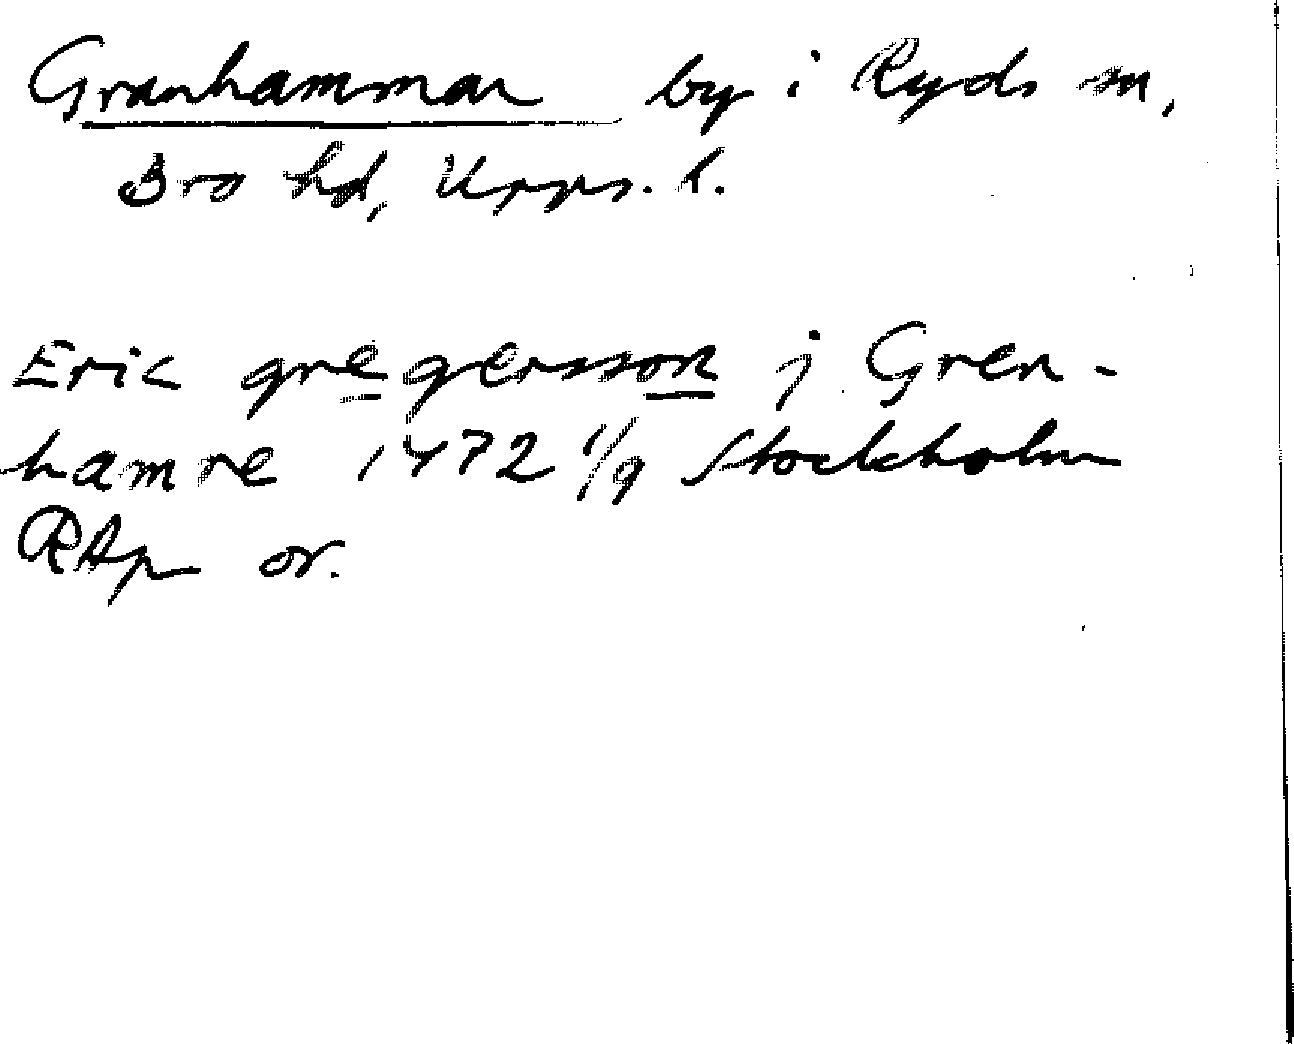 Granhammar by i Ryds sn,
Bro hd, Upps. l.
Eric gregersson j Gren-
hamre 1472 1/9 Stockholm
RAp or.